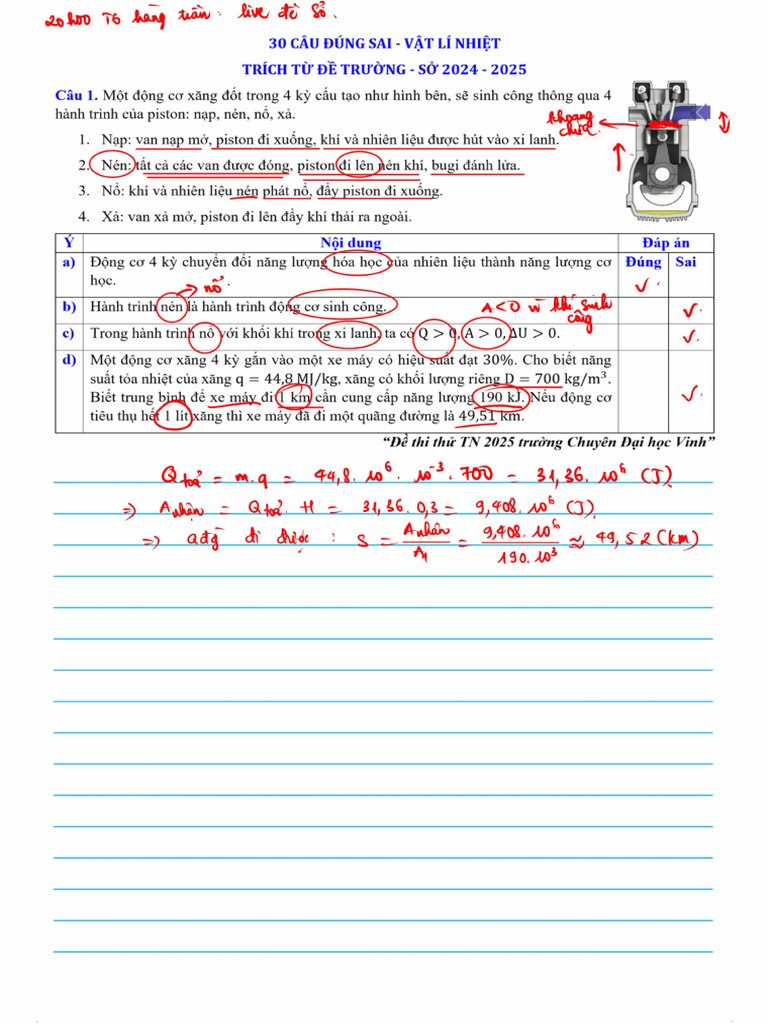 20h00 T6 hàng tuần: live đề Sở.
30 CÂU ĐÚNG SAI - VẬT LÍ NHIỆT
TRÍCH TỪ ĐỀ TRƯỜNG - SỞ 2024 - 2025
Câu 1. Một động cơ xăng đốt trong 4 kỳ cấu tạo như hình bên, sẽ sinh công thông qua 4
hành trình của piston: nạp, nén, nổ, xả.
khoang
chứa
1. Nạp: van nạp mở, piston đi xuống, khí và nhiên liệu được hút vào xi lanh.
2. Nén: tất cả các van được đóng, piston đi lên nén khí, bugi đánh lửa.
3. Nổ: khí và nhiên liệu nén phát nổ, đẩy piston đi xuống.
4. Xả: van xả mở, piston đi lên đẩy khí thải ra ngoài.
Ý Nội dung Đáp án
a) Động cơ 4 kỳ chuyển đổi năng lượng hóa học của nhiên liệu thành năng lượng cơ Đúng Sai
học.
nổ
b) Hành trình nén là hành trình động cơ sinh công. A<0 vì khí sinh
công
c) Trong hành trình nổ với khối khí trong xi lanh, ta có Q > 0, A > 0, ΔU > 0.
d) Một động cơ xăng 4 kỳ gắn vào một xe máy có hiệu suất đạt 30%. Cho biết năng
suất tỏa nhiệt của xăng q = 44,8 MJ/kg, xăng có khối lượng riêng D = 700 kg/m³.
Biết trung bình để xe máy đi 1 km cần cung cấp năng lượng 190 kJ. Nếu động cơ
tiêu thụ hết 1 lít xăng thì xe máy đã đi một quãng đường là 49,51 km.
“Đề thi thử TN 2025 trường Chuyên Đại học Vinh”
Q toả = m.q = 44,8.10⁶.10⁻³.700 = 31,36.10⁶ (J)
⇒ A nhận = Q toả. H = 31,36.0,3 = 9,408.10⁶ (J)
⇒ qđg đi được: S = A nhận / A₁ = 9,408.10⁶ / 190.10³ ≈ 49,52 (km)